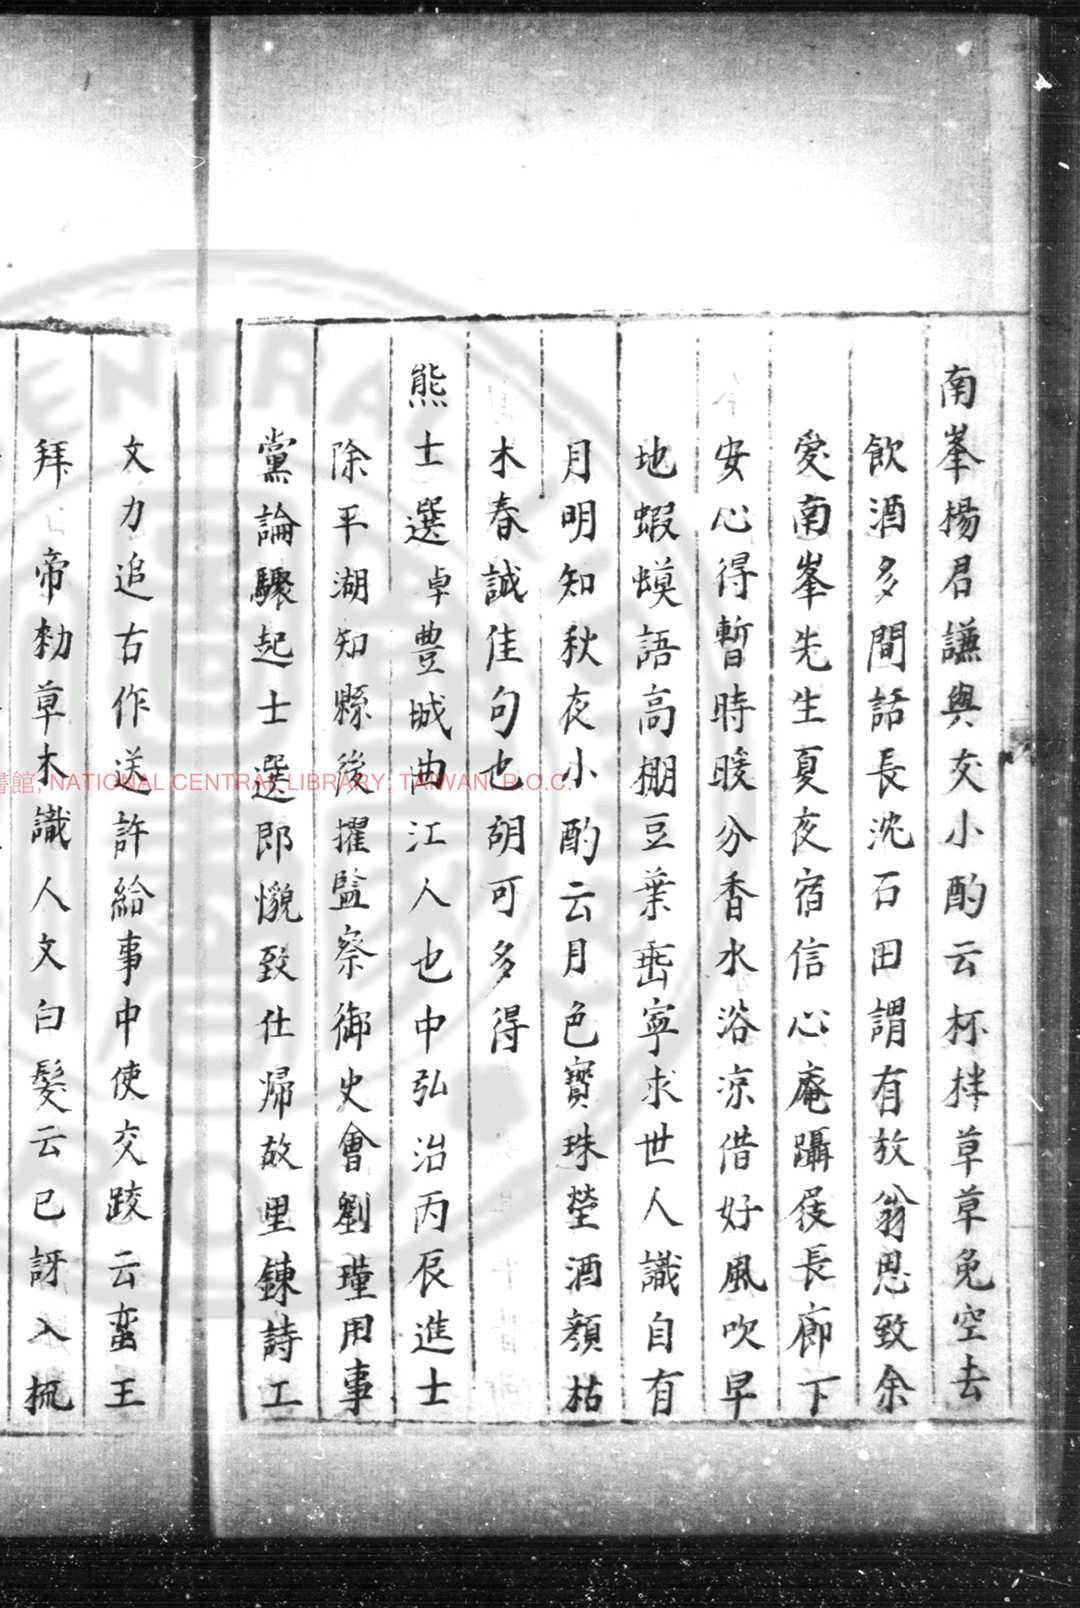 南峯楊君謙與交小酌云杯柈草草免空去
飲酒多間話長沈石田謂有放翁思致余
愛南峯先生夏夜宿信心庵躡屐長廊下
安心得暫時暖分香水浴涼借好風吹早
地蝦蟆語高棚豆葉垂寧求世人識自有
月明知秋夜小酌云月色寶珠瑩酒顏枯
木春誠佳句也胡可多得
熊士選卓豊城曲江人也中弘治丙辰進士
除平湖知縣後擢監察御史會劉瑾用事
黨論驟起士選即懇致仕帰故里鍊詩工
文力追古作送許給事中使交趾云蛮王
拜 帝勑草木識人文白髮云已訝入梳
NATIONAL CENTRAL LIBRARY, TAIWAN, R.O.C.